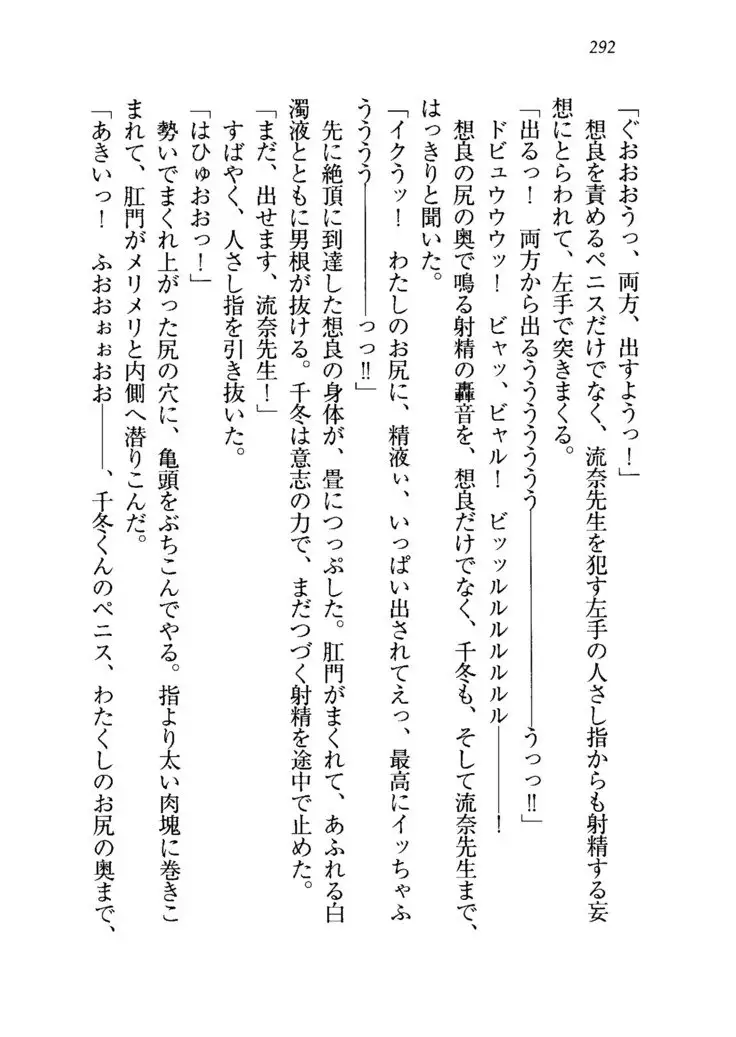 292
「ぐおおおうっ、両方、出すようっ！」
想良を責めるペニスだけでなく、流奈先生を犯す左手の人さし指からも射精する妄
想にとらわれて、左手で突きまくる。
「出るっ！　両方から出るうううううう――――――うっっ‼」
ドビュウウウッ！　ビャッ、ビャル！　ビッッルルルルルルル――――！
想良の尻の奥で鳴る射精の轟音を、想良だけでなく、千冬も、そして流奈先生まで、
はっきりと聞いた。
「イクうッ！　わたしのお尻に、精液ぃ、いっぱい出されてえっ、最高にイッちゃふ
うううう――――――っっ‼」
先に絶頂に到達した想良の身体が、畳につっぷした。肛門がまくれて、あふれる白
濁液とともに男根が抜ける。千冬は意志の力で、まだつづく射精を途中で止めた。
「まだ、出せます、流奈先生！」
すばやく、人さし指を引き抜いた。
「はひゅおおっ！」
勢いでまくれ上がった尻の穴に、亀頭をぶちこんでやる。指より太い肉塊に巻きこ
まれて、肛門がメリメリと内側へ潜りこんだ。
「あきいっ！　ふおおぉぉおお――、千冬くんのペニス、わたくしのお尻の奥まで、